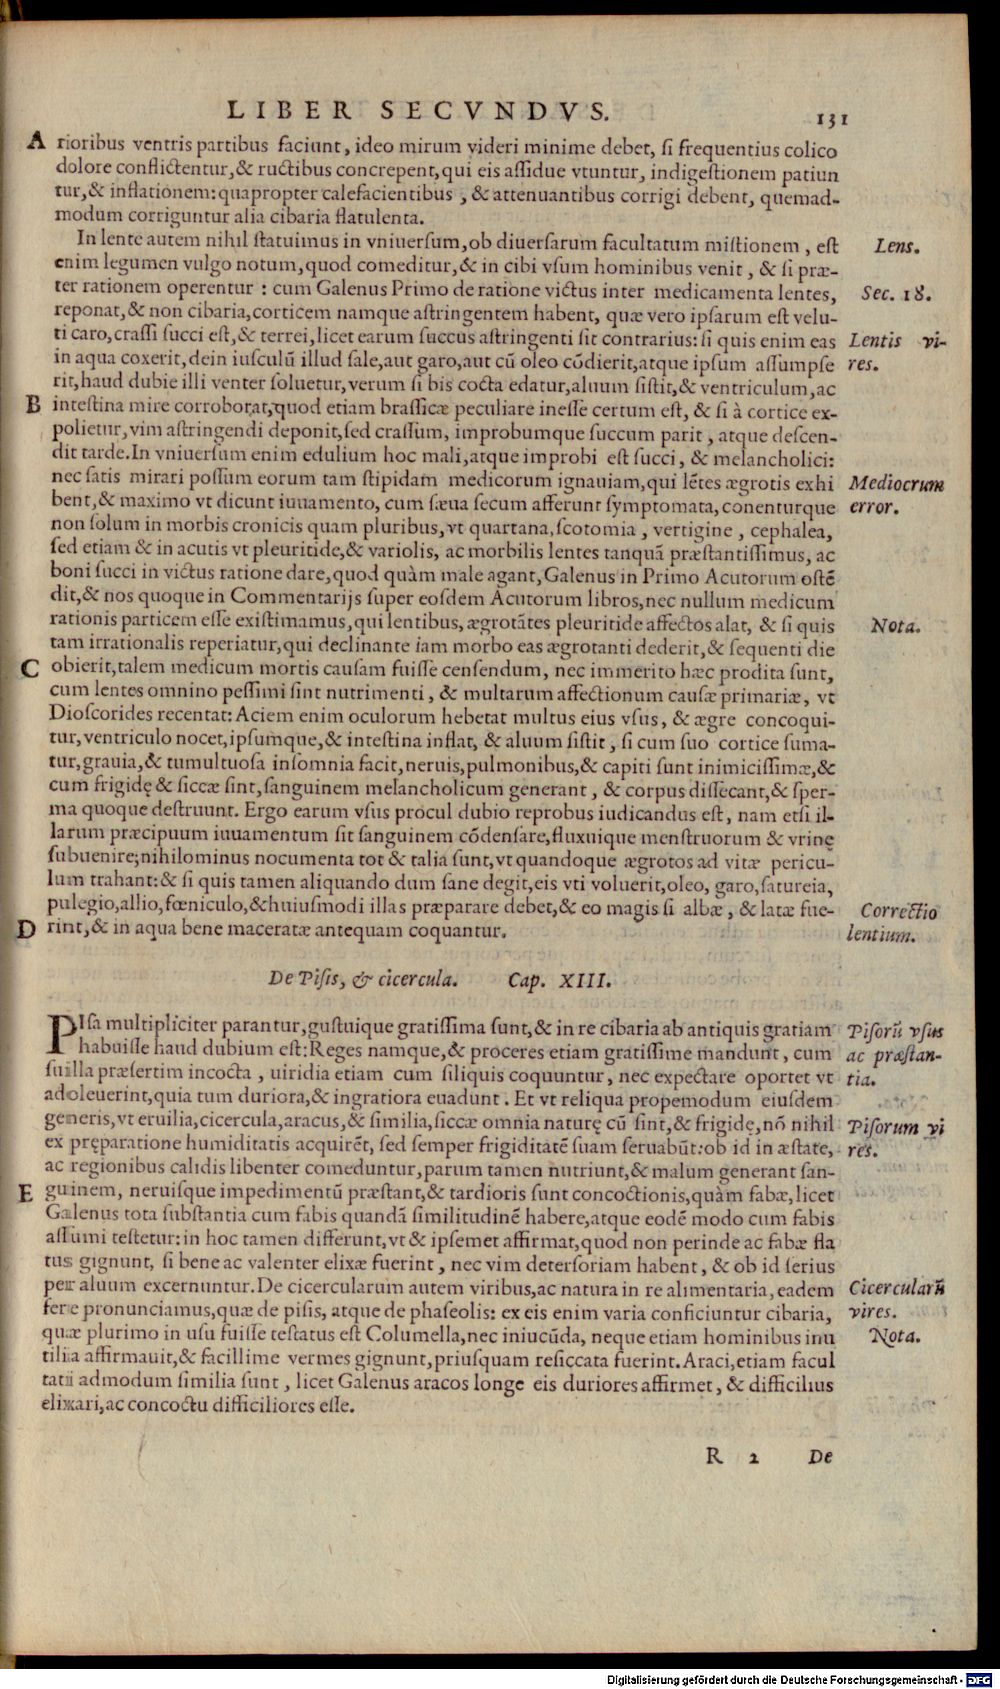 LIBER SECVNDVS. 131
A rioribus ventris partibus faciunt, ideo mirum videri minime debet, si frequentius colico
dolore conflictentur,& ructibus concrepent,qui eis assidue vtuntur, indigestionem patiun
tur,& inflationem: quapropter calefacientibus, & attenuantibus corrigi debent, quemad-
modum corriguntur alia cibaria flatulenta.
In lente autem nihil statuimus in vniuersum,ob diuersarum facultatum mistionem, est Lens.
enim legumen vulgo notum,quod comeditur,& in cibi vsum hominibus venit, & si præ-
ter rationem operentur : cum Galenus Primo de ratione victus inter medicamenta lentes, Sec. 18.
reponat,& non cibaria,corticem namque astringentem habent, quæ vero ipsarum est velu-
ti caro,crassi succi est,& terrei,licet earum succus astringenti sit contrarius: si quis enim eas Lentis vi-
in aqua coxerit,dein iusculũ illud sale,aut garo,aut cũ oleo cõdierit,atque ipsum assumpse res.
rit,haud dubie illi venter soluetur,verum si bis cocta edatur,aluum sistit,& ventriculum,ac
B intestina mire corroborat,quod etiam brassicæ peculiare inesse certum est, & si à cortice ex-
polietur,vim astringendi deponit,sed crassum, improbumque succum parit, atque descen-
dit tarde.In vniuersum enim edulium hoc mali,atque improbi est succi, & melancholici:
nec satis mirari possum eorum tam stipidam medicorum ignauiam,qui lẽtes ægrotis exhi Mediocrum
bent,& maximo vt dicunt iuuamento, cum sæua secum afferunt symptomata, conenturque error.
non solum in morbis cronicis quam pluribus,vt quartana,scotomia, vertigine, cephalea,
sed etiam & in acutis vt pleuritide,& variolis, ac morbilis lentes tanquã præstantissimus, ac
boni succi in victus ratione dare,quod quàm male agant,Galenus in Primo Acutorum ostẽ
dit,& nos quoque in Commentarijs super eosdem Acutorum libros,nec nullum medicum
rationis particem esse existimamus,qui lentibus,ægrotãtes pleuritide affectos alat, & si quis Nota.
tam irrationalis reperiatur,qui declinante iam morbo eas ægrotanti dederit,& sequenti die
C obierit,talem medicum mortis causam fuisse censendum, nec immerito hæc prodita sunt,
cum lentes omnino pessimi sint nutrimenti, & multarum affectionum causæ primariæ, vt
Dioscorides recentat: Aciem enim oculorum hebetat multus eius vsus, & ægre concoqui-
tur,ventriculo nocet,ipsumque,& intestina inflat, & aluum sistit, si cum suo cortice suma-
tur,grauia,& tumultuosa insomnia facit,neruis,pulmonibus,& capiti sunt inimicissimæ,&
cum frigidę & siccæ sint,sanguinem melancholicum generant, & corpus dissecant,& sper-
ma quoque destruunt. Ergo earum vsus procul dubio reprobus iudicandus est, nam etsi il-
larum præcipuum iuuamentum sit sanguinem cõdensare,fluxuique menstruorum & vrinę
subuenire;nihilominus nocumenta tot & talia sunt,vt quandoque ægrotos ad vitæ pericu-
lum trahant:& si quis tamen aliquando dum sane degit,eis vti voluerit,oleo, garo,satureia,
pulegio,allio,fœniculo,&huiusmodi illas præparare debet,& eo magis si albæ, & latæ fue- Correctio
D rint,& in aqua bene maceratæ antequam coquantur. lentium.
De Pisis, & cicercula. Cap. XIII.
PIsa multipliciter parantur,gustuique gratissima sunt,& in re cibaria ab antiquis gratiam Pisorũ vsus
habuisse haud dubium est: Reges namque,& proceres etiam gratissime mandunt, cum ac præstan-
suilla præsertim incocta, uiridia etiam cum siliquis coquuntur, nec expectare oportet vt tia.
adoleuerint,quia tum duriora,& ingratiora euadunt. Et vt reliqua propemodum eiusdem
generis,vt eruilia,cicercula,aracus,& similia,siccæ omnia naturę cũ sint,& frigidę,nõ nihil Pisorum vi
ex pręparatione humiditatis acquirẽt, sed semper frigiditatẽ suam seruabũt:ob id in æstate, res.
ac regionibus calidis libenter comeduntur,parum tamen nutriunt,& malum generant san-
E guinem, neruisque impedimentũ præstant,& tardioris sunt concoctionis,quàm fabæ,licet
Galenus tota substantia cum fabis quandã similitudinẽ habere,atque eodẽ modo cum fabis
assumi testetur: in hoc tamen differunt,vt & ipsemet affirmat,quod non perinde ac fabæ fla
tus gignunt, si bene ac valenter elixæ fuerint, nec vim detersoriam habent, & ob id serius
per aluum excernuntur.De cicercularum autem viribus,ac natura in re alimentaria, eadem Cicercularũ
fere pronunciamus,quæ de pisis, atque de phaseolis: ex eis enim varia conficiuntur cibaria, vires.
quæ plurimo in usu fuisse testatus est Columella,nec iniucũda, neque etiam hominibus inu Nota.
tilia affirmauit,& facillime vermes gignunt,priusquam resiccata fuerint. Araci,etiam facul
tatu admodum similia sunt, licet Galenus aracos longe eis duriores affirmet, & difficilius
elixari,ac concoctu difficiliores esse.
R 2 De
Digitalisierung gefördert durch die Deutsche Forschungsgemeinschaft - DFG